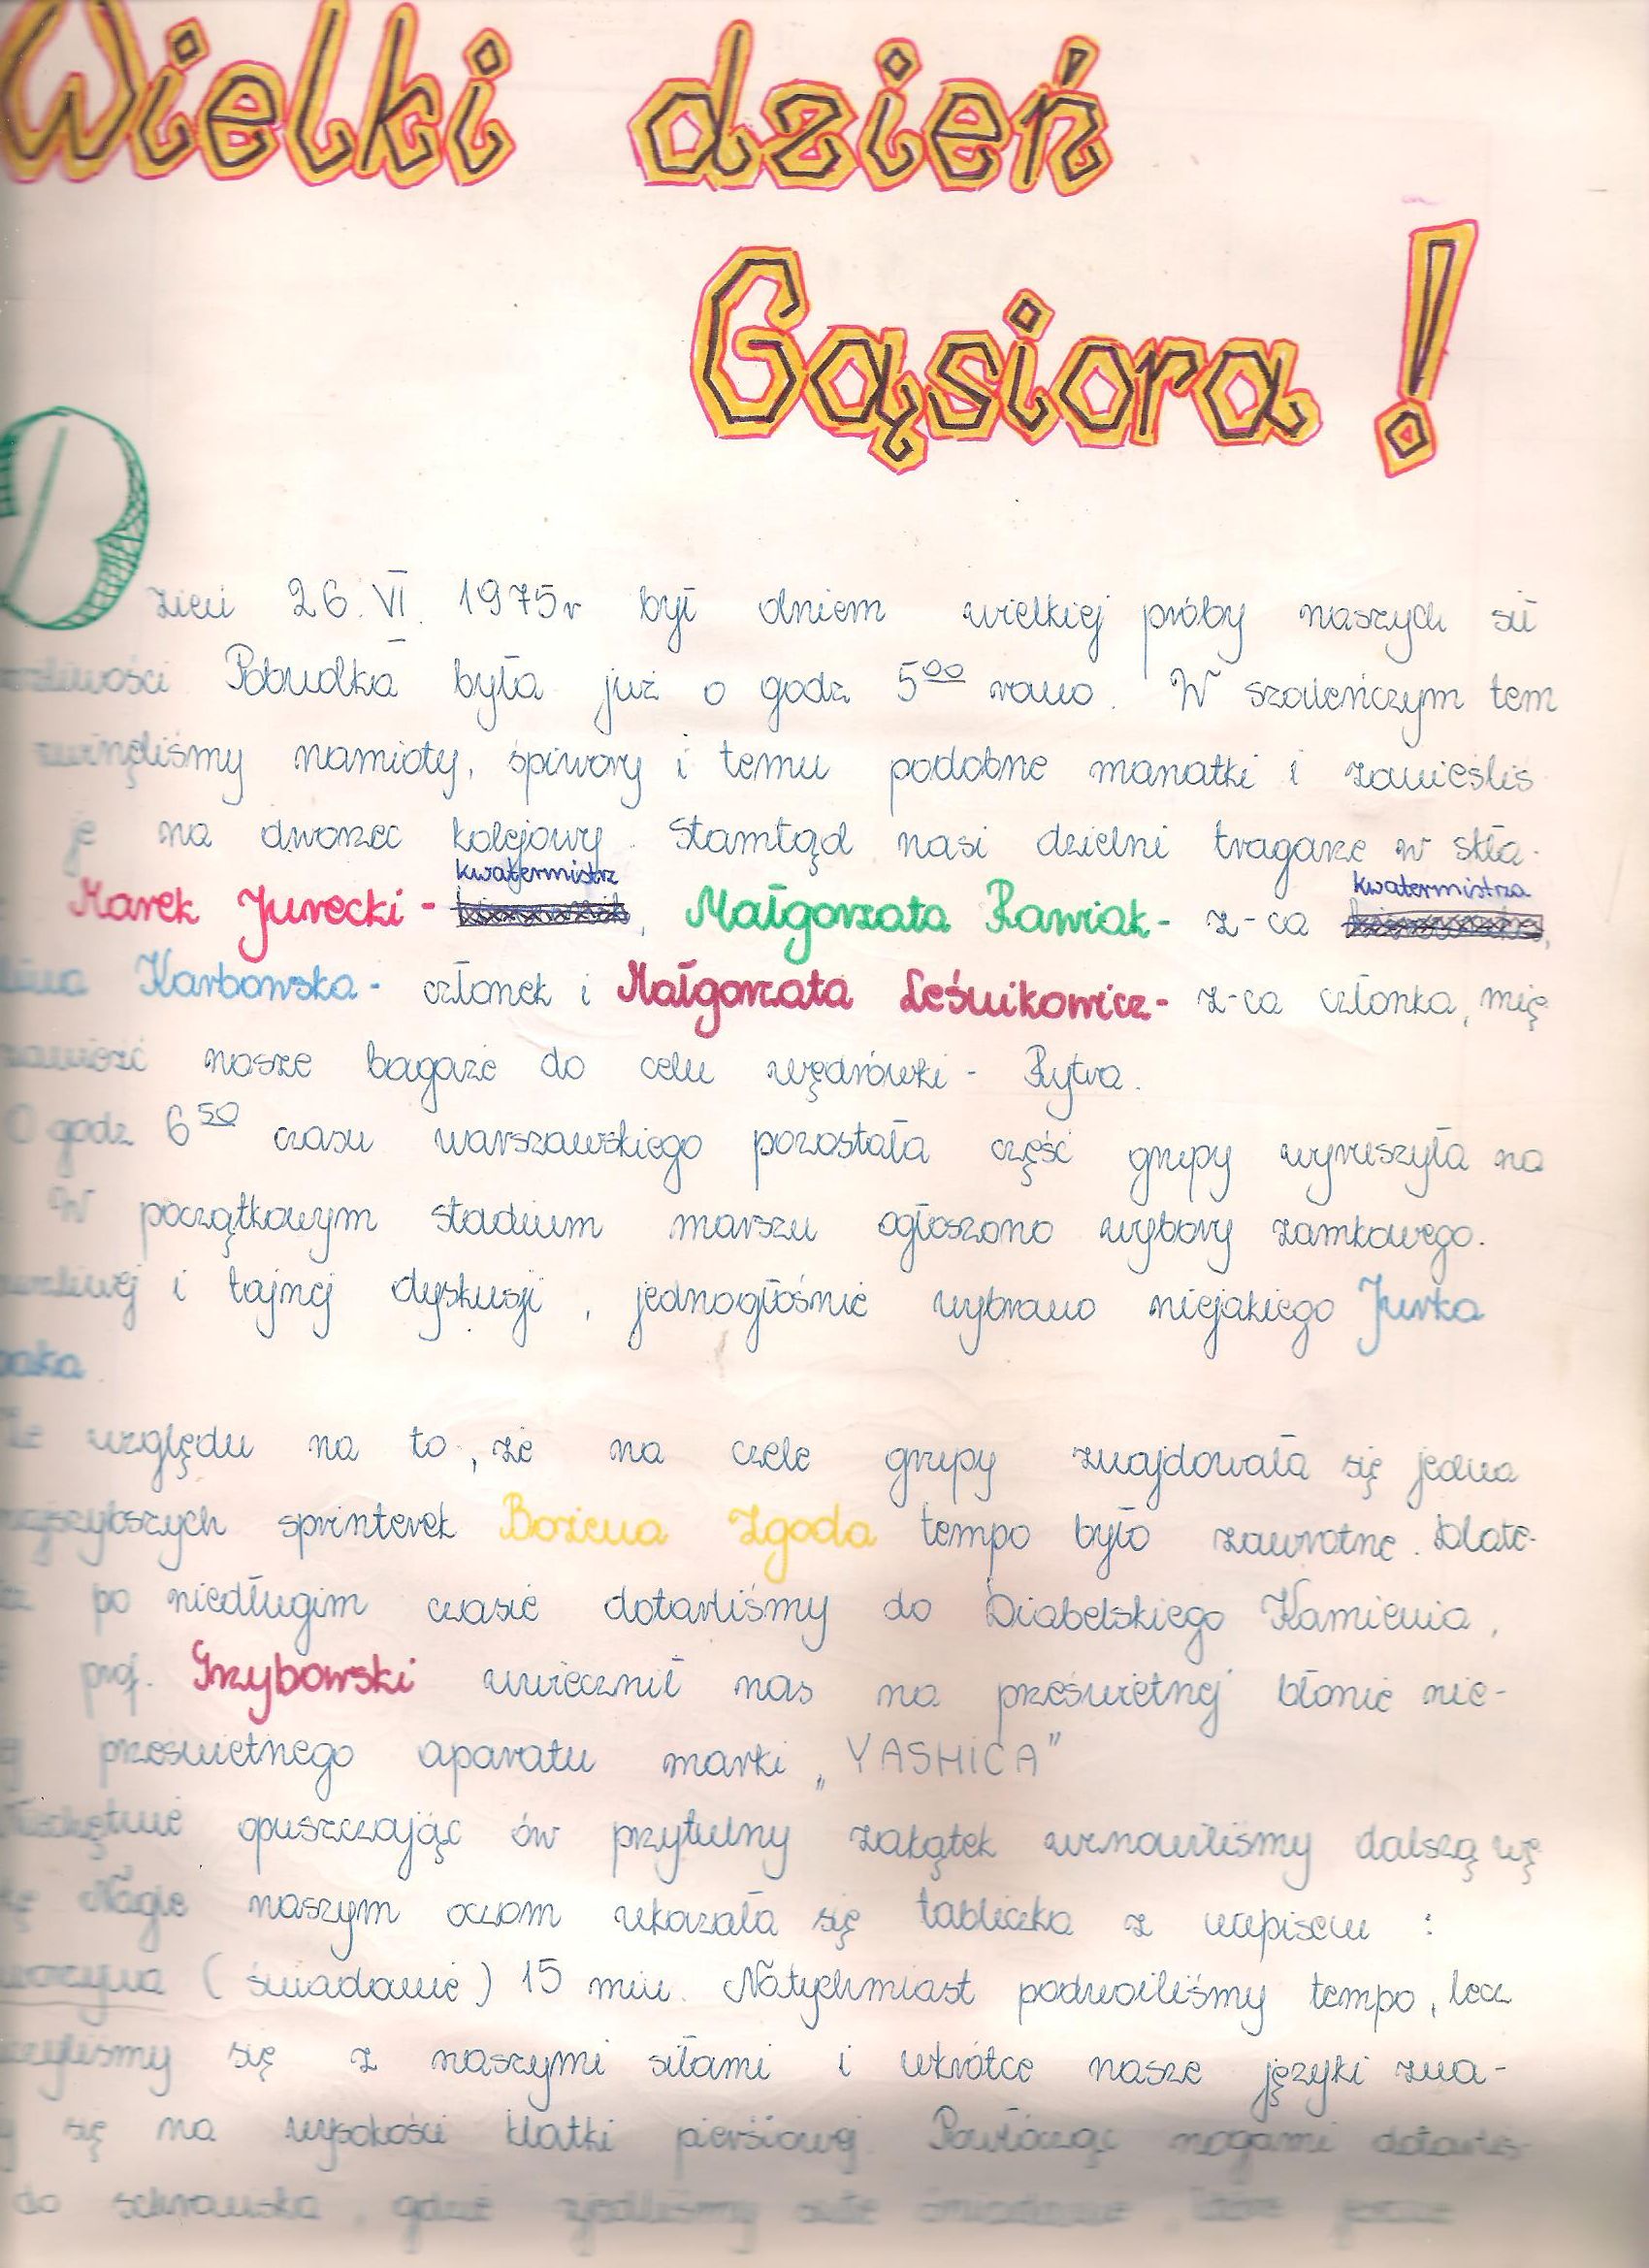 Wielki dzień
Gąsiora!
Dzień 26.VI.1975r był dniem wielkiej próby naszych sił
Pobudka była już o godz 5⁰⁰ rano. W szaleńczym tem
zwinęliśmy namioty, śpiwory i temu podobne manatki i zanieśliś
je na dworzec kolejowy. Stamtąd nasi dzielni tragarze w skła-
Marek Jurecki - kwatermistrz, Małgorzata Rawiak - z-ca kwatermistrza,
Karbowska - członek i Małgorzata Leśnikowicz - z-ca członka, mię
zawieźć nasze bagaże do celu wędrówki - Rytra.
O godz 6⁵⁰ czasu warszawskiego pozostała część grupy wyruszyła na
W początkowym stadium marszu ogłoszono wybory zamkowego.
i tajnej dyskusji, jednogłośnie wybrano niejakiego Jurka
Ze względu na to, że na czele grupy znajdowała się jedna
najszybszych sprinterek Bożena Zgoda tempo było zawrotne. Dlate-
po niedługim czasie dotarliśmy do Diabelskiego Kamienia,
prof. Grzybowski uwiecznił nas na prześwietnej błonie nie-
prześwietnego aparatu marki „YASHICA"
Niechętnie opuszczając ów przytulny zakątek wznowiliśmy dalszą wę
Nagle naszym oczom ukazała się tabliczka z napisem :
(śniadanie) 15 min. Natychmiast podwoiliśmy tempo, lecz
się z naszymi siłami i wkrótce nasze języki zna-
się na wysokości klatki piersiowej. Powłócząc nogami dotarliś-
do schroniska, gdzie zjedliśmy śniadanie, które jeszcze